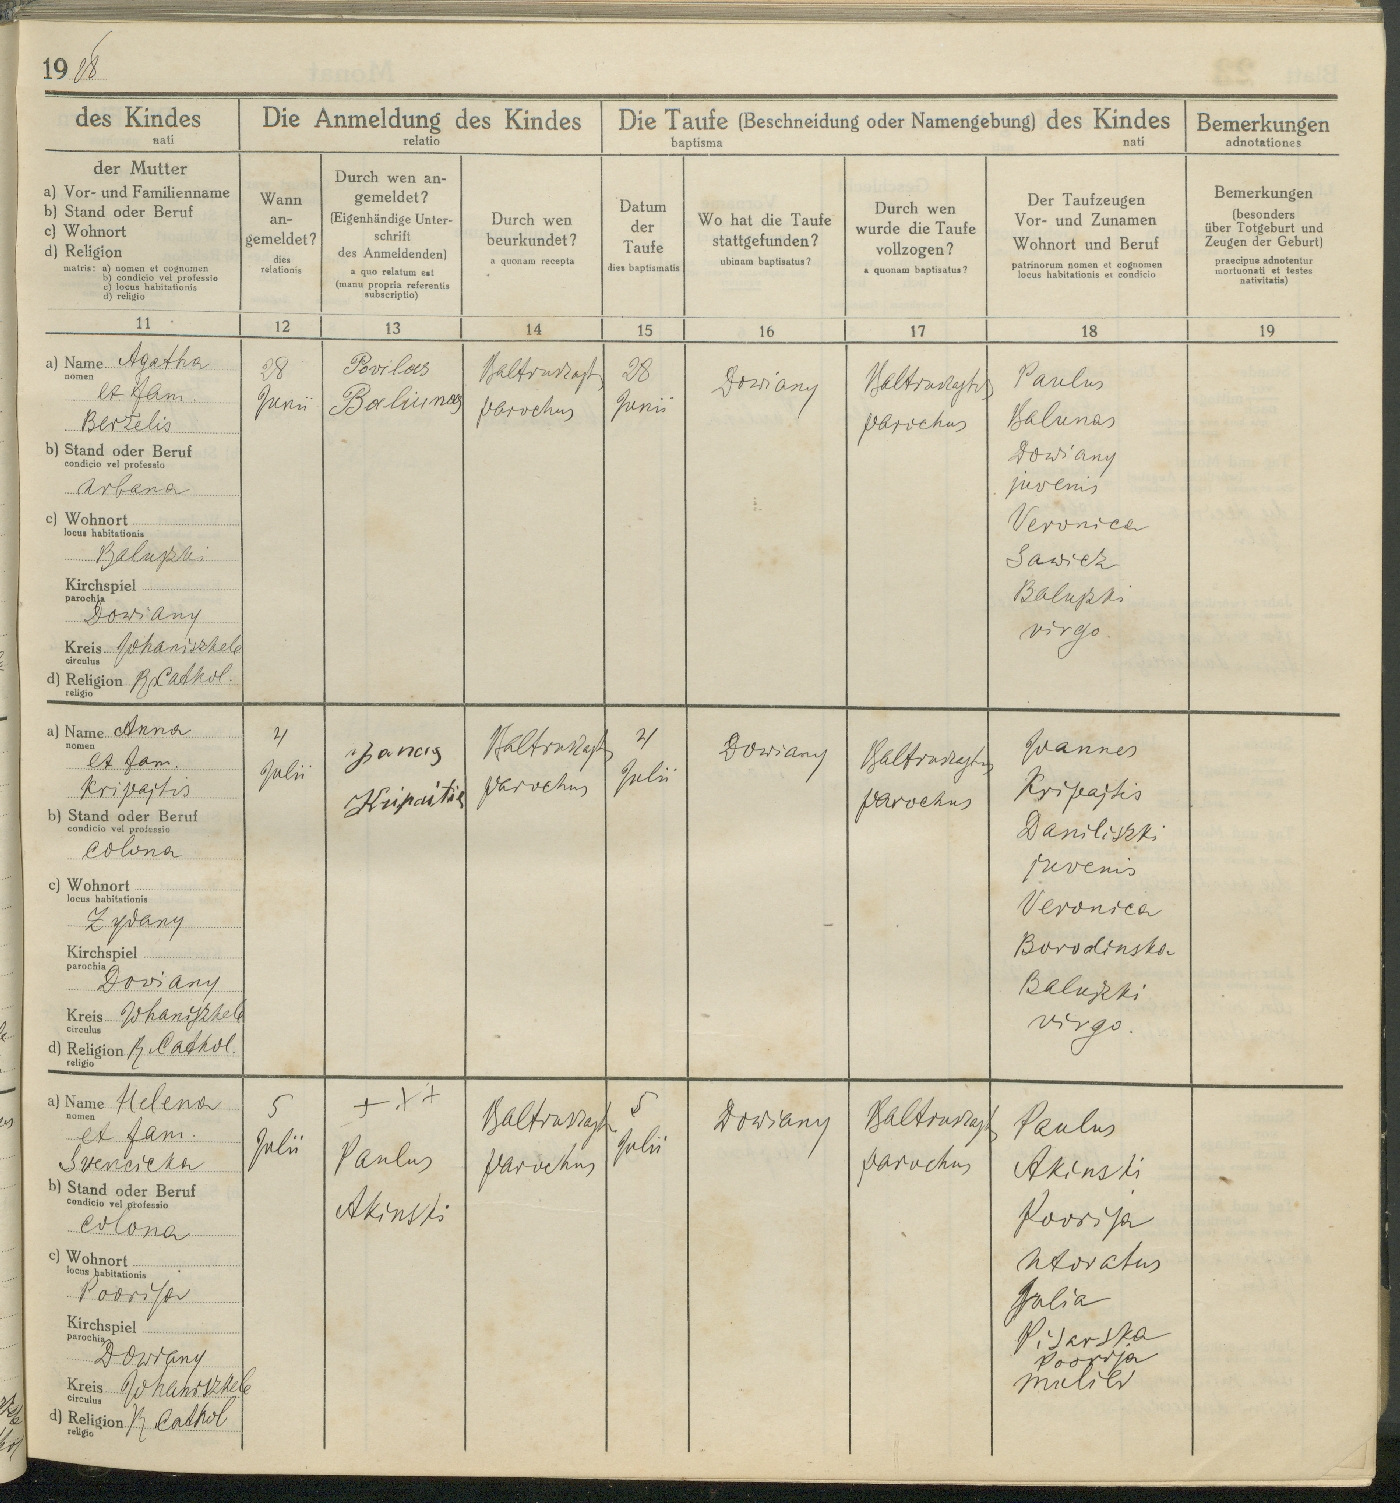 19 18
des Kindes
nati
Die Anmeldung des Kindes
relatio
Die Taufe (Beschneidung oder Namengebung) des Kindes
baptisma nati
Bemerkungen
adnotationes
der Mutter
a) Vor- und Familienname
b) Stand oder Beruf
c) Wohnort
d) Religion
matris: a) nomen et cognomen
b) condicio vel professio
c) locus habitationis
d) religio
Wann
an-
gemeldet?
dies
relationis
Durch wen an-
gemeldet?
(Eigenhändige Unter-
schrift
des Anmeldenden)
a quo relatum est
(manu propria referentis
subscriptio)
Durch wen
beurkundet?
a quonam recepta
Datum
der
Taufe
dies baptismatis
Wo hat die Taufe
stattgefunden?
ubinam baptisatus?
Durch wen
wurde die Taufe
vollzogen?
a quonam baptisatus?
Der Taufzeugen
Vor- und Zunamen
Wohnort und Beruf
patrinorum nomen et cognomen
locus habitationis et condicio
Bemerkungen
(besonders
über Totgeburt und
Zeugen der Geburt)
praecipue adnotentur
mortuonati et testes
nativitatis)
11 12 13 14 15 16 17 18 19
a) Name Agatha
nomen
et fam.
Berželis
b) Stand oder Beruf
condicio vel professio
urbana
c) Wohnort
locus habitationis
Baluszki
Kirchspiel
parochia
Dowiany
Kreis Johaniszkele
circulus
d) Religion R. Cathol.
religio
28
Junii
Povilas
Baliunas
Baltruszajtys
parochus
28
Junii
Dowiany
Baltruszajtys
parochus
Paulus
Balunas
Dowiany
juvenis
Veronica
Sawick
Baluszki
virgo.
a) Name Anna
nomen
et fam.
Kripajtis
b) Stand oder Beruf
condicio vel professio
colona
c) Wohnort
locus habitationis
Zydany
Kirchspiel
parochia
Dowiany
Kreis Johaniszkele
circulus
d) Religion R. Cathol.
religio
4
Julii
Janas
Kripaitis
Baltruszajtys
parochus
4
Julii
Dowiany
Baltruszajtys
parochus
Joannes
Kripajtis
Daniliszki
juvenis
Veronica
Borodinska
Baluszki
virgo.
a) Name Helena
nomen
et fam.
Svencicka
b) Stand oder Beruf
condicio vel professio
colona
c) Wohnort
locus habitationis
Poorija
Kirchspiel
parochia
Dowiany
Kreis Johaniszkele
circulus
d) Religion R Cathol
religio
5
Julii
+ + +
Paulus
Akinski
Baltruszajtys
parochus
5
Julii
Dowiany
Baltruszajtys
parochus
Paulus
Akinski
Poorija
uxoratus
Julia
Pisarska
Poorija